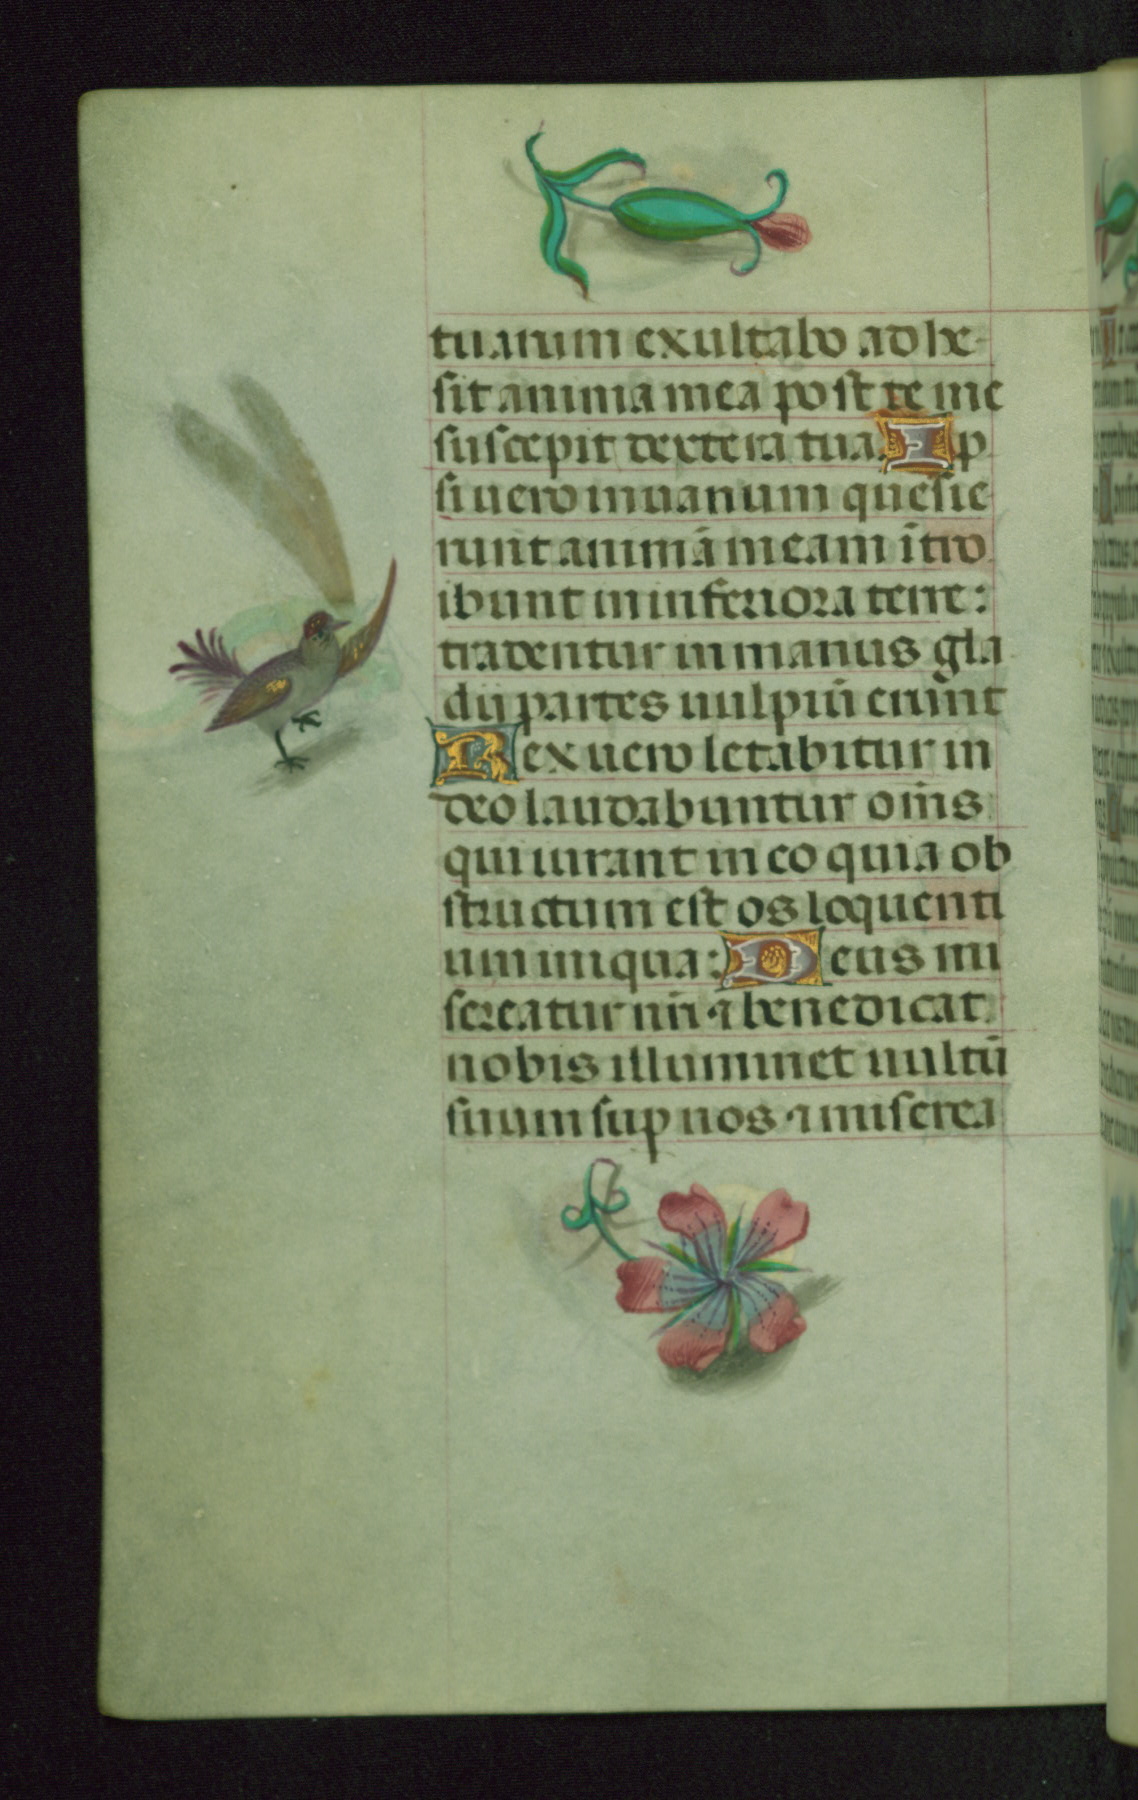 tuarum exultabo adhe-
sit anima mea post te me
suscepit dextera tua. Ip
si uero inuanum quesie
runt animā meam ītro
ibunt in inferiora terre:
tradentur in manus gla
dij partes uulpiū erunt
Rex uero letabitur in
deo laudabuntur om̄s
qui iurant in eo quia ob
structum est os loquenti
um iniqua: Deus mi
sereatur nr̄i ⁊ benedicat
nobis illuminet uultū
suum sup nos ⁊ miserea